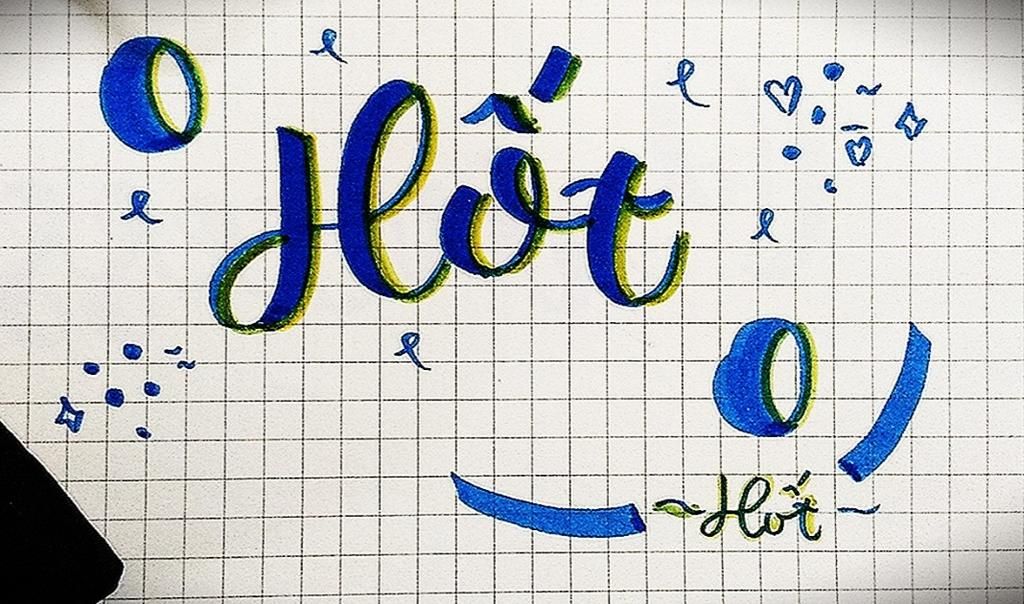 Hốt
~Hốt~